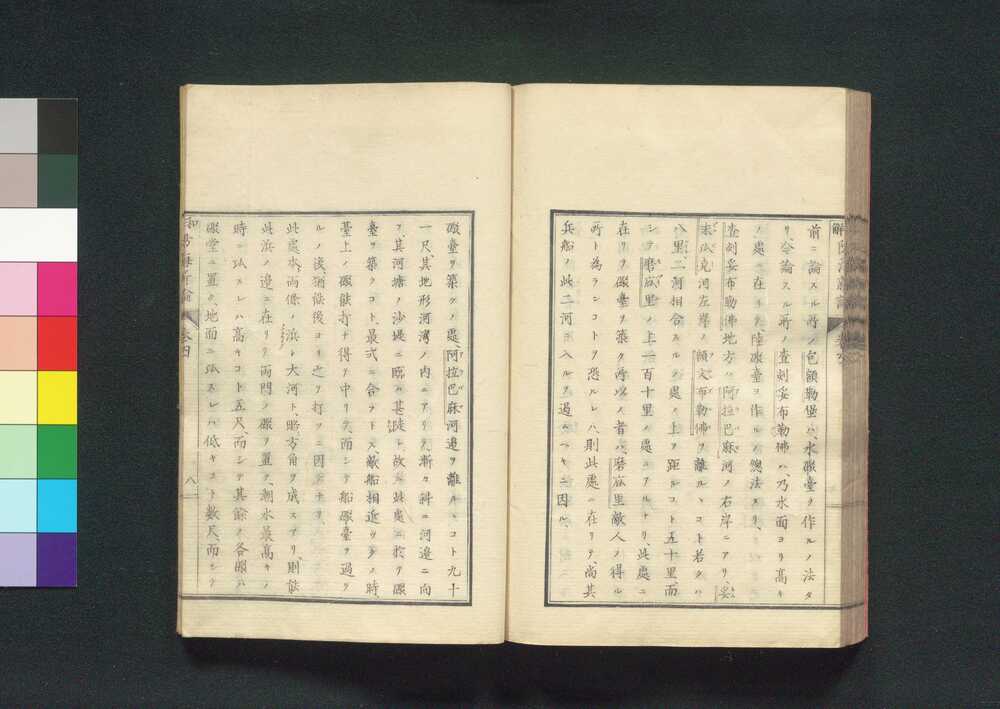 前ニ論スル所ノ白額勒堡ハ、水礮臺ヲ作ルノ法タ
リ、今論スル所ノ查剣妥布勒彿ハ、乃水面ヨリ高キ
ノ處ニ在リテ陸礮臺ヲ作ルノ總法ナリ、
查剣妥布勒彿地方ハ阿拉巴麻河ノ右岸ニアリ、妥
末瓜克河左岸ノ傾文布勒彿ヲ離ルヽコト若クハ
八里、二河相合スルノ處ノ上ヲ距ルコト五十里而
シテ磨庇里ノ上一百十里ノ處ニアルナリ、此處ニ
在リテ礮臺ヲ築ク所以ノ者ハ、磨庇里敵人ノ得ル
所ト為ランコトヲ恐ルレハ、則此處ニ在リテ尚其
兵船ノ此二河ニ入ルヲ過ムヘキニ因ル、
礮臺ヲ築クノ處、阿拉巴麻河邊ヲ離ルヽコト九十
一尺、其地形河灣ノ内ニアリテ、漸々斜ニ河邊ニ向
フ、其河塘ノ沙堤ニ臨ム甚陡シ、故ニ此處ニ於テ礮
臺ヲ築クコト、最式ニ合ヲトス、敵船相近ツクノ時、
臺上ノ礮能打チ得テ中リテ、而シテ船礮臺ヲ過ク
ルノ後、猶能後ヨリ之ヲ打ツニ因
此處水両條ノ浜ト大河ト、略方角ヲ成スアリ、則能
此浜ノ邊ニ在リテ両門ノ礮ヲ置ク、潮水最高キノ
時ニ以スレハ高キコト五尺、而シテ其餘ノ各礮ハ
礮堂ニ置ク、地面ニ以スレハ低キコト数尺、而シテ
卷四
八